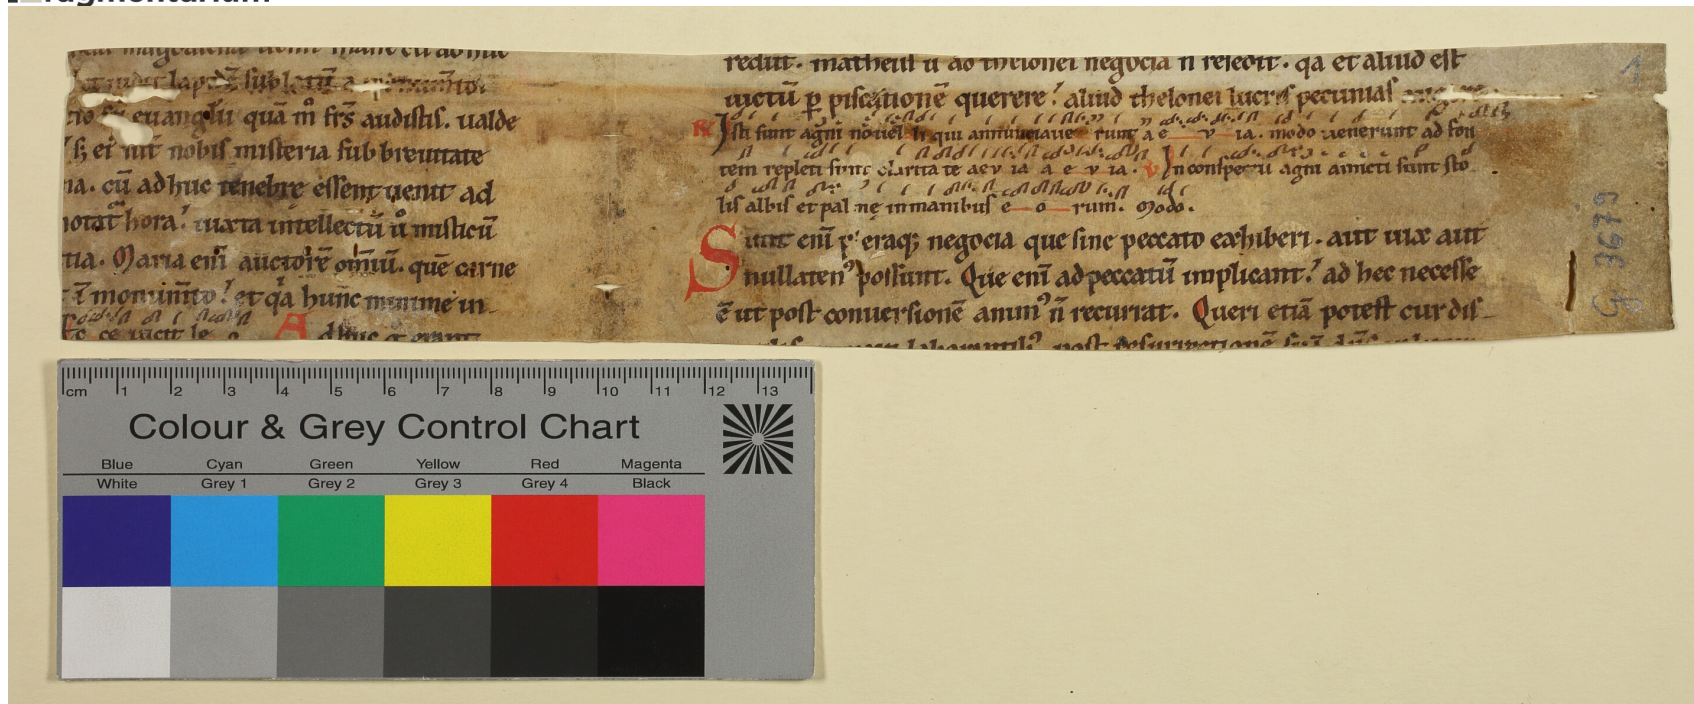 fragmentarium
magdalena uenit mane cu adhuc
et uidit lapidē sublatū a
euanglii quā m̊ frs̄ audistis. ualde
nobis misteria sub breuitate
na. cū adhuc tenebre essent uenit ad
notat̄ hora. iuxta intellectū u̇ misticū
tia. Maria eni auctorē omiū. quē carne
ī monumto. et qa hunc minime in
A dhuc
rediit. matheus u ad thelonei negocia n resedit. qa et aliud est
uictū p piscationē querere. aliud thelonei lucris pecunias
℟ Isti sunt agni nouel li qui annunciaue runt a e v ia. modo uenerunt ad fon
tem repleti sunt claritate aev ia a e v ia. ℣ In conspectu agni amicti sunt sto
lis albis et pal me in manibus e o rum. Modo.
Sunt eni negocia que sine peccato exhiberi. aut uix aut
nullatenꝰ possunt. Que eni ad peccatū implicant. ad hec necesse
ē ut post conuersionē animꝰ n̄ recurrat. Queri etiā potest cur dis
laborantibꝫ post resurrectionē
G 3679
1
cm 1 2 3 4 5 6 7 8 9 10 11 12 13
Colour & Grey Control Chart
Blue Cyan Green Yellow Red Magenta
White Grey 1 Grey 2 Grey 3 Grey 4 Black